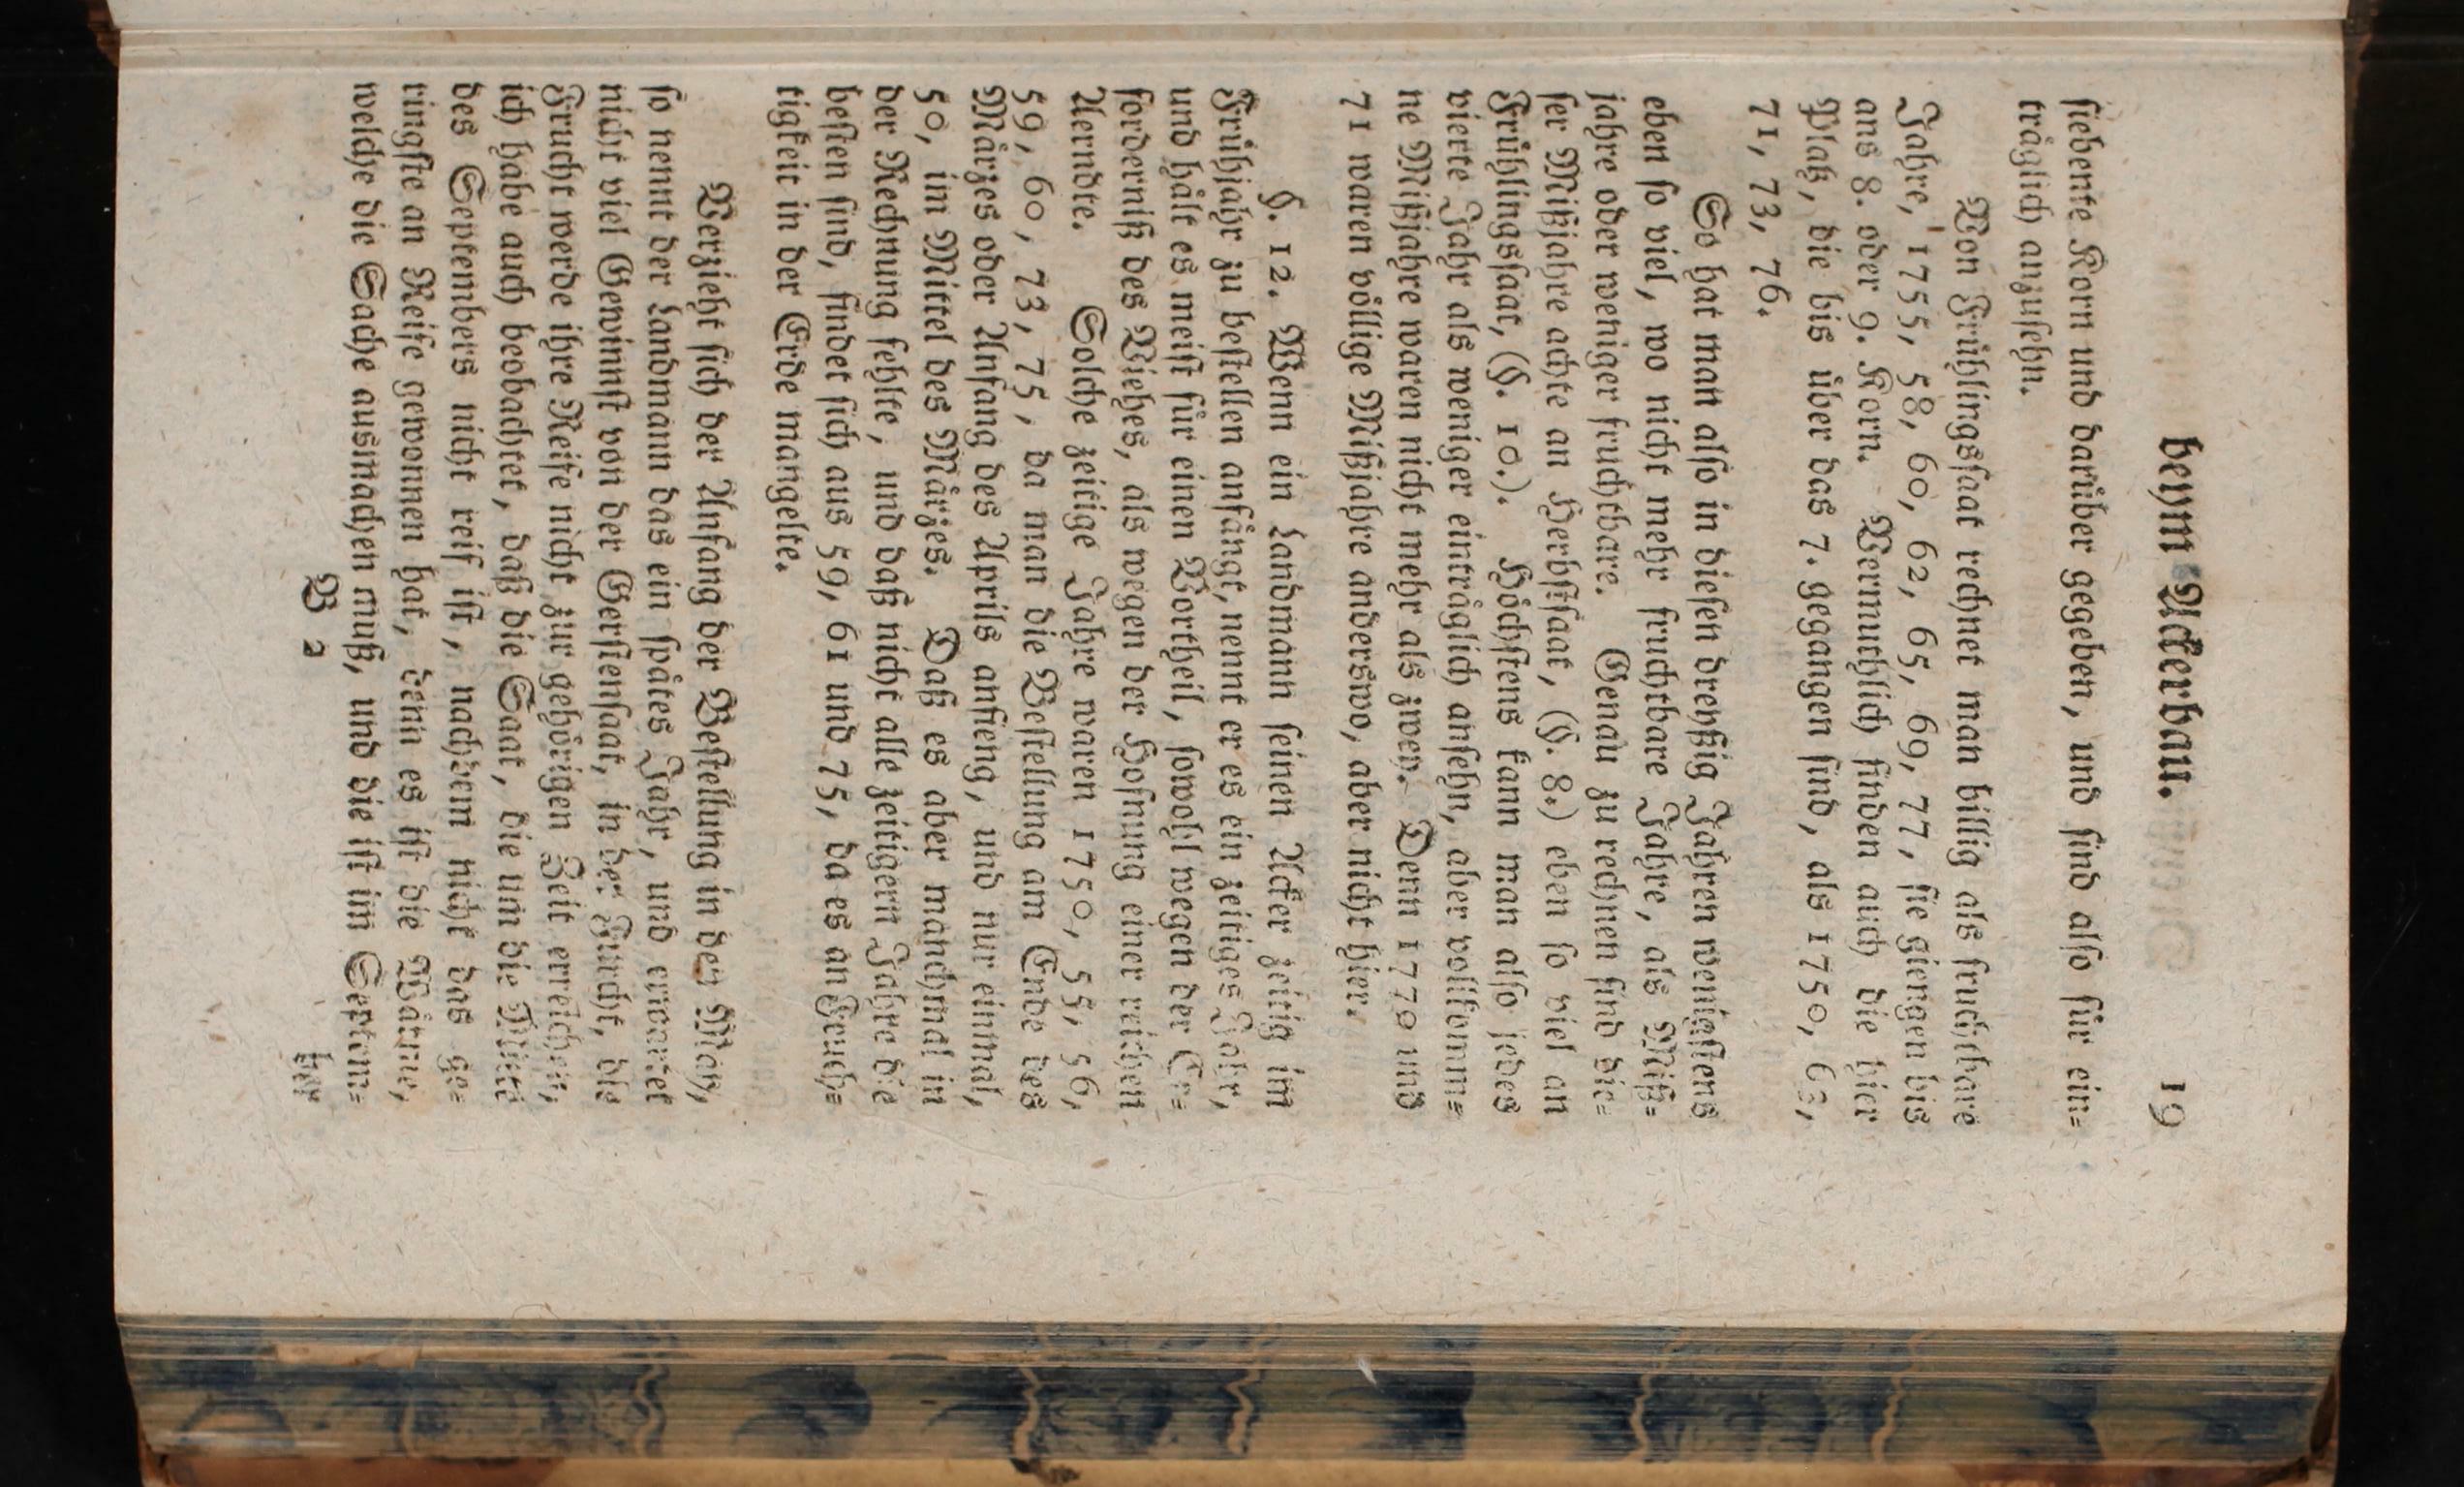 beym Ackerbau. 19
ſiebente Korn und darüber gegeben, und ſind alſo für ein=
träglich anzuſehn.
Von Frühlingsſaat rechnet man billig als fruchtbare
Jahre, 1755, 58, 60, 62, 65, 69, 77, ſie giengen bis
ans 8. oder 9. Korn. Vermuthlich finden auch die hier
Platz, die bis über das 7. gegangen ſind, als 1750, 63,
71, 73, 76.
So hat man alſo in dieſen dreyßig Jahren wenigſtens
eben ſo viel, wo nicht mehr fruchtbare Jahre, als Miß=
jahre oder weniger fruchtbare. Genau zu rechnen ſind die=
ſer Mißjahre achte an Herbſtſaat, (§. 8.) eben ſo viel an
Frühlingsſaat, (§. 10.). Höchſtens kann man alſo jedes
vierte Jahr als weniger einträglich anſehn, aber vollkomm=
ne Mißjahre waren nicht mehr als zwey. Denn 1770 und
71 waren völlige Mißjahre anderswo, aber nicht hier.
§. 12. Wenn ein Landmann ſeinen Acker zeitig im
Frühjahr zu beſtellen anfängt, nennt er es ein zeitiges Jahr,
und hält es meiſt für einen Vortheil, ſowohl wegen der Er=
forderniß des Viehes, als wegen der Hofnung einer reichen
Aerndte. Solche zeitige Jahre waren 1750, 55, 56,
59, 60, 73, 75, da man die Beſtellung am Ende des
Märzes oder Anfang des Aprils anfieng, und nur einmal,
50, im Mittel des Märzes. Daß es aber manchmal in
der Rechnung fehlte, und daß nicht alle zeitigern Jahre die
beſten ſind, findet ſich aus 59, 61 und 75, da es an Feuch=
tigkeit in der Erde mangelte.
Verzieht ſich der Anfang der Beſtellung in den May,
ſo nennt der Landmann das ein ſpätes Jahr, und erwartet
nicht viel Gewinnſt von der Gerſtenſaat, in der Furcht, die
Frucht werde ihre Reife nicht zur gehörigen Zeit erreichen,
ich habe auch beobachtet, daß die Saat, die um die Mitte
des Septembers nicht reif iſt, nachdem nicht das ge=
ringſte an Reife gewonnen hat, denn es iſt die Wärme,
welche die Sache ausmachen muß, und die iſt im Septem=
B 2 ber